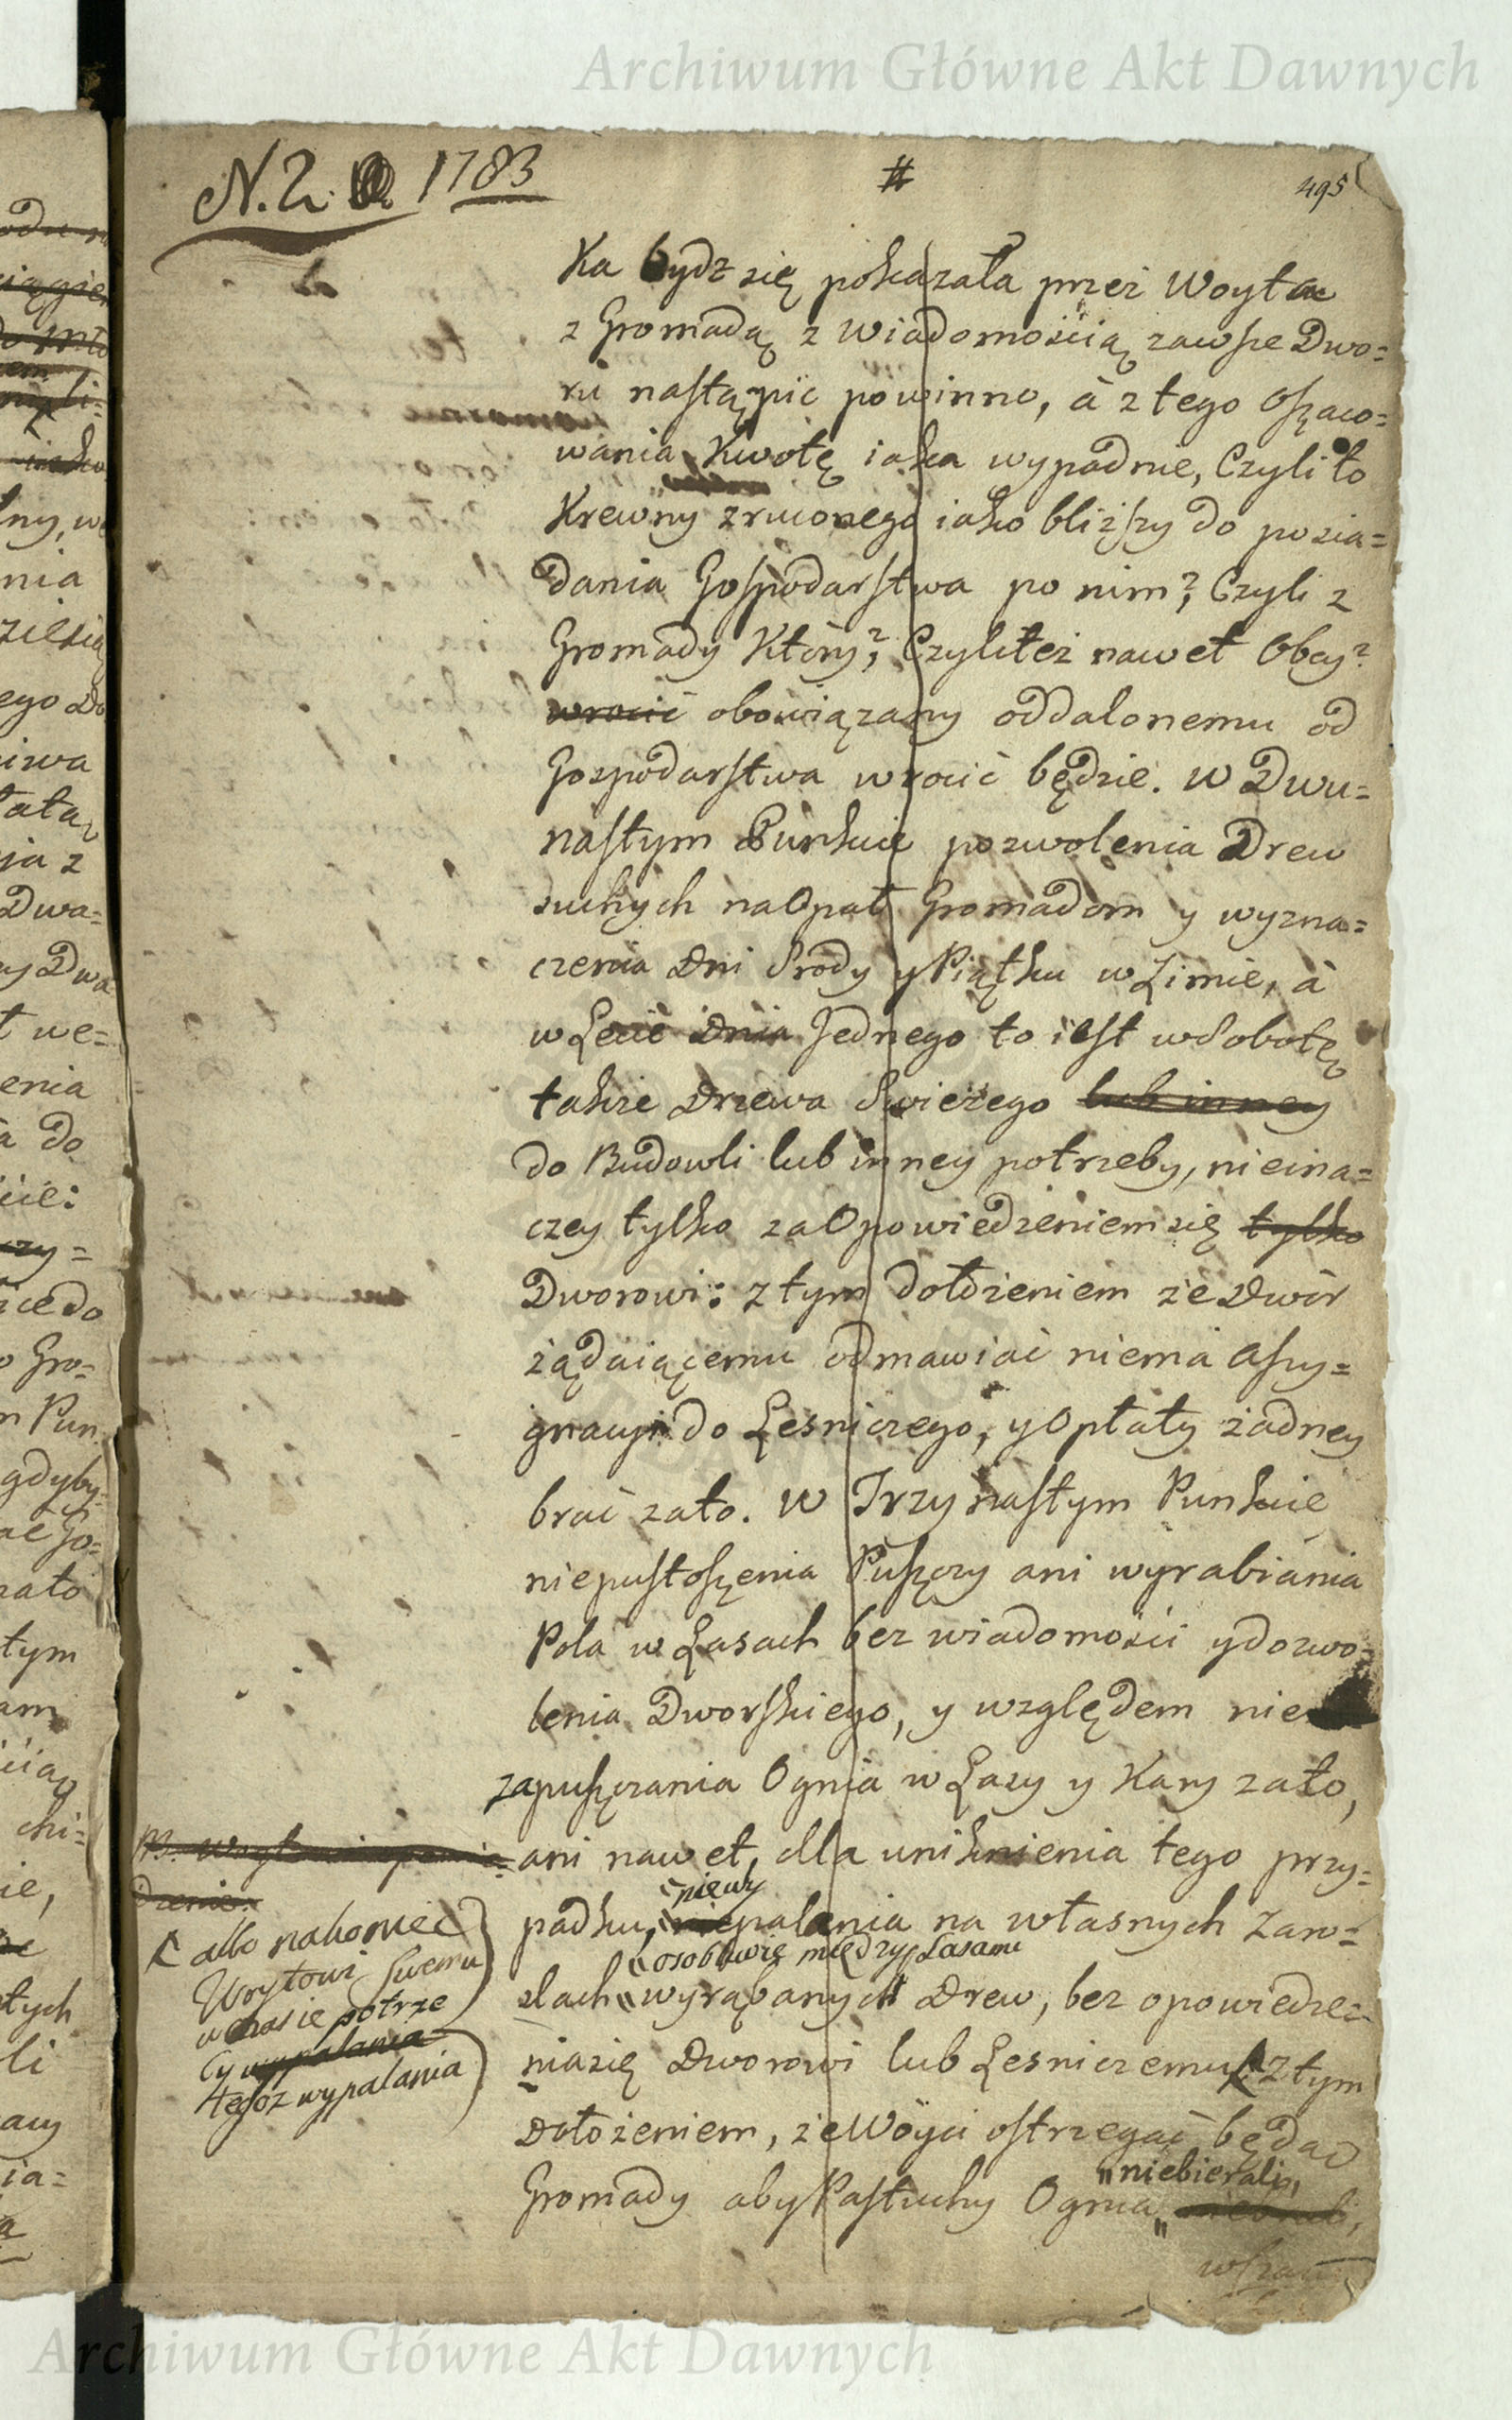 Archiwum Główne Akt Dawnych
N. 2. 1783
#
495
Ka bydz się pokazała przez Woyta
z Gromadą z wiadomością zawsze Dwo=
ru nastąpić powinno, à z tego Oszaco=
wania Kwotę iaka wypadnie, Czyli to
Krewny zruconego iako bliższy do posia=
dania Gospodarstwa po nim?, Czyli z
Gromady Który?, Czyliteż nawet Obcy?
wrocić obowiązany oddalonemu od
Gospodarstwa wrocić będzie. W Dwu=
nastym Punkcie pozwolenia Drew
suchych na Opał Gromadom y wyzna=
czenia Dni Srody y Piątku w Zimie, à
w Lecie Dnia Jednego to iest w Sobotę
także Drzewa Swieżego lub inney
do Budowli lub inney potrzeby, nieina=
czey tylko za Opowiedzeniem się tylko
Dworowi: z tym dołożeniem że Dwór
żądaiącemu odmawiać niema Assy=
gnacyi do Lesniczego, y Opłaty żadney
brać zato. W Trzynastym Punkcie
niepustoszenia Puszczy ani wyrabiania
Pola w Lasach bez wiadomości y dozwo=
lenia Dworskiego, y względem nie
zapuszczania Ognia w Lasy y Kary zato,
ani nawet, dla uniknienia tego przy=
niewy
padku, niepalenia na własnych Zaro=
osobliwie między Lasami
slach wyrąbanych Drew, bez opowiedze=
nia się Dworowi lub Lesniczemu z tym
Dołożeniem, że Wóyci ostrzegać będą
niebierali,
Gromady aby Pastuchy Ognia
albo nakoniec
Woytowi swemu
w czasie potrze
by wypalania
tegoż wypalania
Archiwum Główne Akt Dawnych